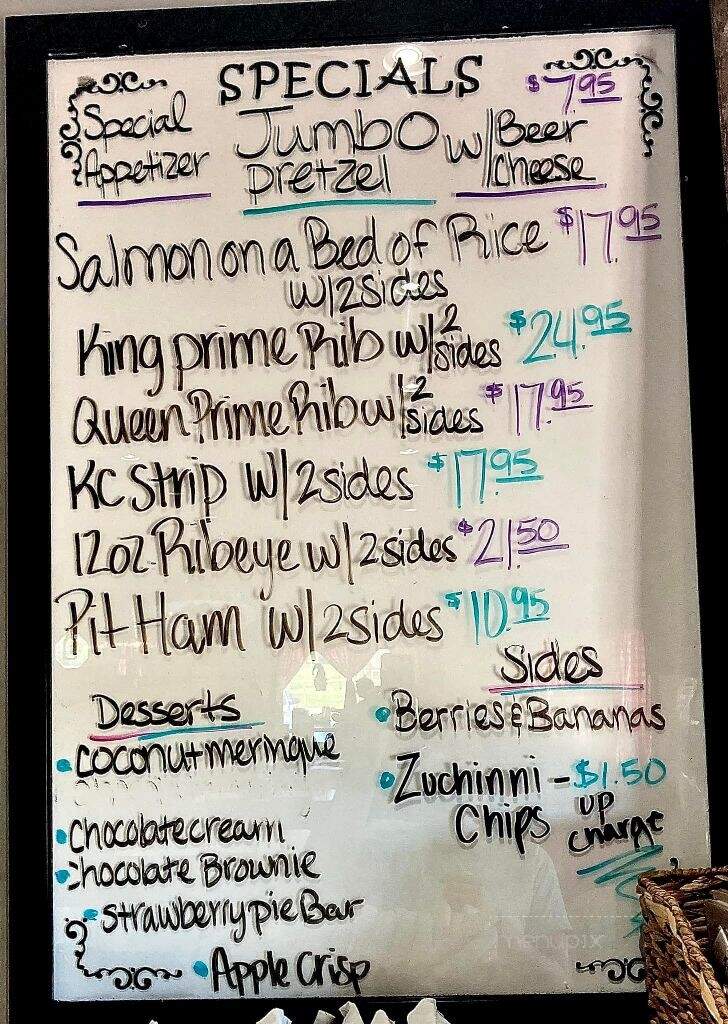 SPECIALS
Special Appetizer Jumbo Pretzel w/ Beer Cheese $7.95
Salmon on a Bed of Rice $17.95
w/2sides
King prime Rib w/2 sides $24.95
Queen Prime Rib w/2 sides $17.95
KC Strip w/2sides $17.95
12oz Ribeye w/2sides $21.50
Pit Ham w/2sides $10.95
Sides
• Berries & Bananas
• Zuchinni Chips - $1.50 up charge
Desserts
• coconut meringue
• chocolate cream
• chocolate Brownie
• strawberry pie Bar
• Apple Crisp
menupix